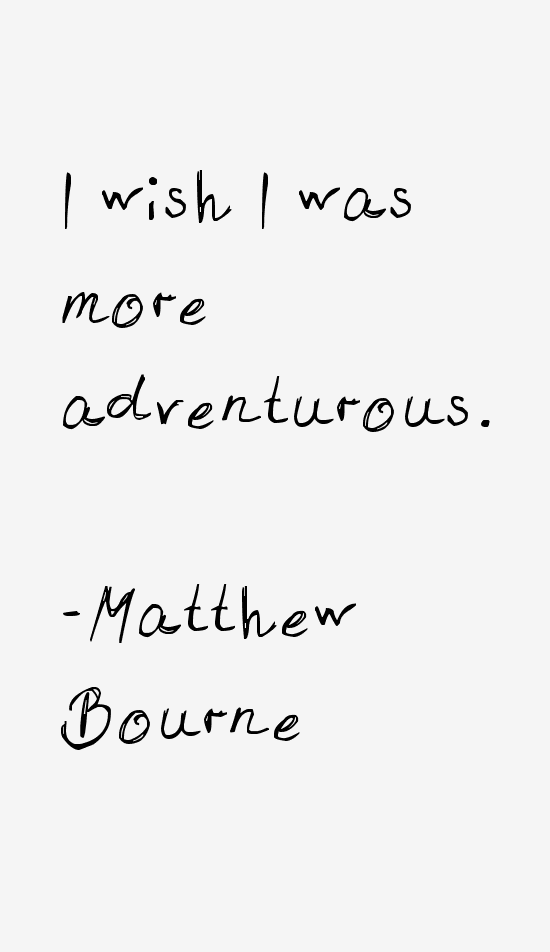 I wish I was
more
adventurous.
-Matthew
Bourne